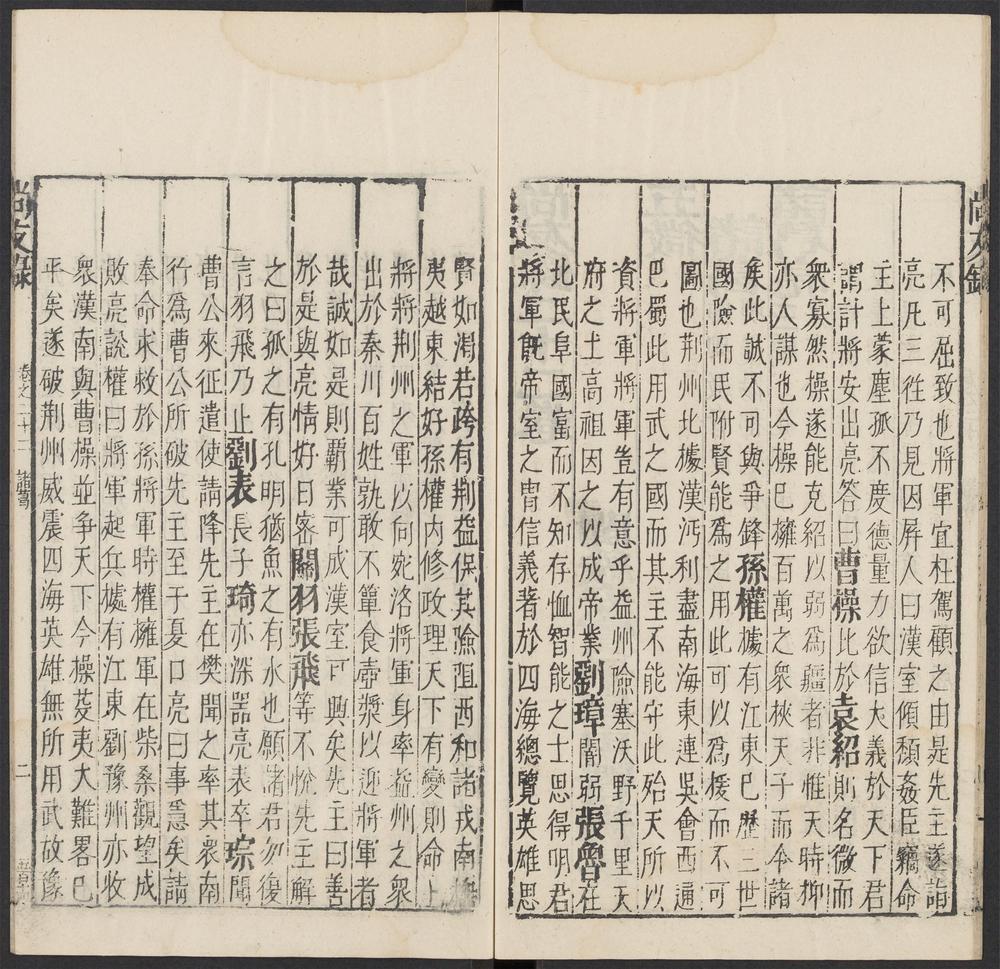 尚友錄
不可屈致也將軍宜枉駕顧之由是先主遂詣
亮凡三徃乃見因屏人曰漢室傾頹姦臣竊命
主上蒙塵孤不度德量力欲信大義於天下君
謂計將安出亮答曰曹操比於袁紹則名微而
衆寡然操遂能克紹以弱爲疆者非惟天時抑
亦人謀也今操巳擁百萬之衆挾天子而令諸
矦此誠不可與爭鋒孫權據有江東巳歷三世
國險而民附賢能爲之用此可以爲援而不可
圖也荆州北據漢沔利盡南海東連吳會西通
巴蜀此用武之國而其主不能守此殆天所以
資將軍將軍豈有意乎益州險塞沃野千里天
府之土高祖因之以成帝業劉璋闇弱張魯在
北民阜國富而不知存恤智能之士思得明君
將軍旣帝室之胄信義著於四海總覽英雄思
賢如渴若跨有荆益保其險阻西和諸戎南撫
夷越東結好孫權内修政理天下有變則命上
將將荆州之軍以向宛洛將軍身率益州之衆
出於秦川百姓孰敢不簞食壺漿以迎將軍者
哉誠如是則霸業可成漢室可興矣先主曰善
於是與亮情好日密關羽張飛等不悅先主解
之曰孤之有孔明猶魚之有水也願諸君勿復
言羽飛乃止劉表長子琦亦深噐亮表卒琮聞
曹公來征遣使請降先主在樊聞之率其衆南
行爲曹公所破先主至于夏口亮曰事急矣請
奉命求救於孫將軍時權擁軍在柴桑觀望成
敗亮說權曰將軍起兵據有江東劉豫州亦收
衆漢南與曹操並爭天下今操芟夷大難畧巳
平矣遂破荆州威震四海英雄無所用武故豫
尚友錄
卷之二十二 諸葛
二